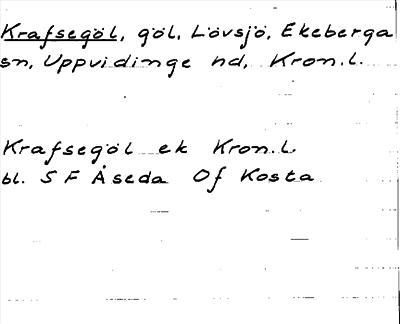 Krafsegöl, göl, Lövsjö, Ekeberga
sn, Uppvidinge hd, Kron.l.
Krafsegöl ek Kron.l.
bl. S F Åseda Of Kosta